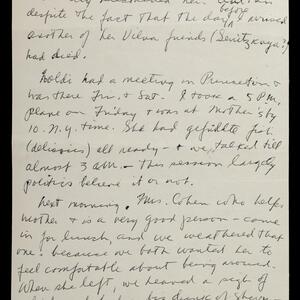 despite the fact that the day before
another of her Vilna friends (
had died.
Poldi had a meeting in Princeton &
was there Fri. & Sat. I took a 5 P.M.
plane on Friday & was at Mother's by
10. N.Y. time. She had gefüllte fish
(delicious) all ready - & we talked till
almost 3 a.m. - This session largely
politics believe it or not.
Next morning, Mrs. Cohen who helps
mother & is a very good person - came
in for lunch, and we weathered that
one because we both wanted her to
feel comfortable about being around.
When she left, we heaved a sigh of